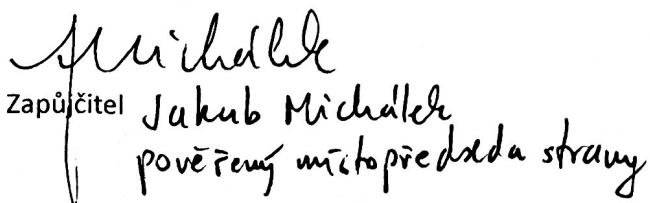 JMichálek
Zapůjčitel Jakub Michálek
pověřený místopředseda strany